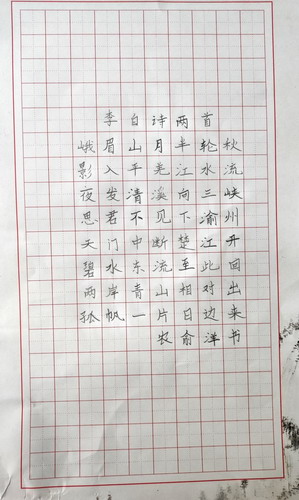 李白诗两首
峨眉山月半轮秋
影入平羌江水流
夜发清溪向三峡
思君不见下渝州
天门中断楚江开
碧水东流至此回
两岸青山相对出
孤帆一片日边来
农俞洋书